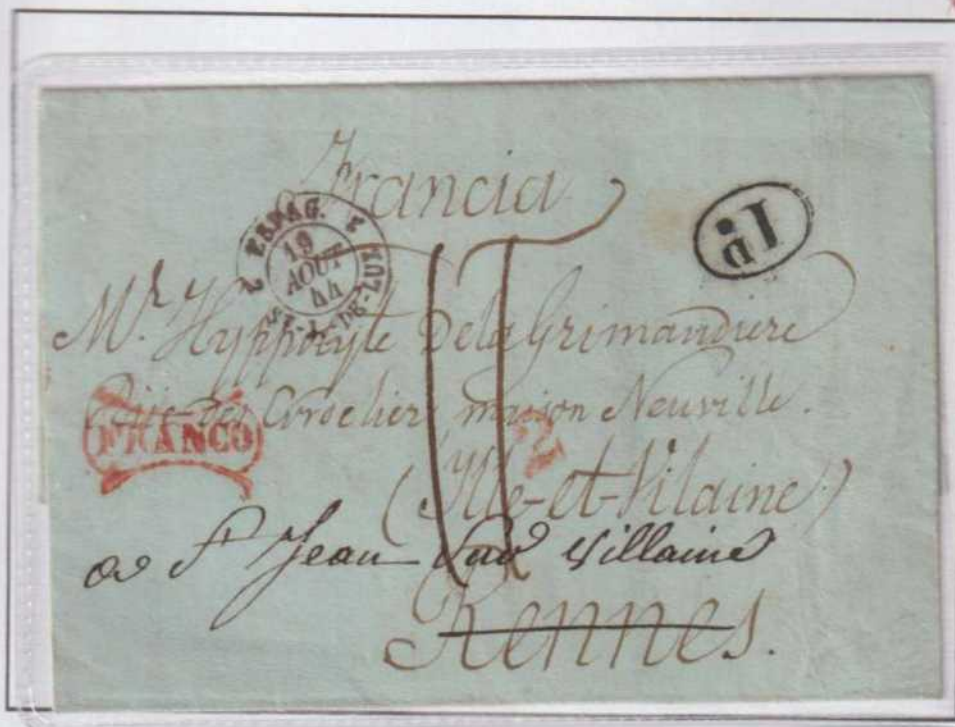 Francia
2 ESPAG. 2
19
AOUT
44
ST-J-DE-LUZ
1D
Mr. Hyppolyte Dela Grimaudiere
Rue des Cordeliers maison Neuville.
FRANCO
2
(Ille-et-Vilaine)
St Jean Sur Villaine
Rennes.